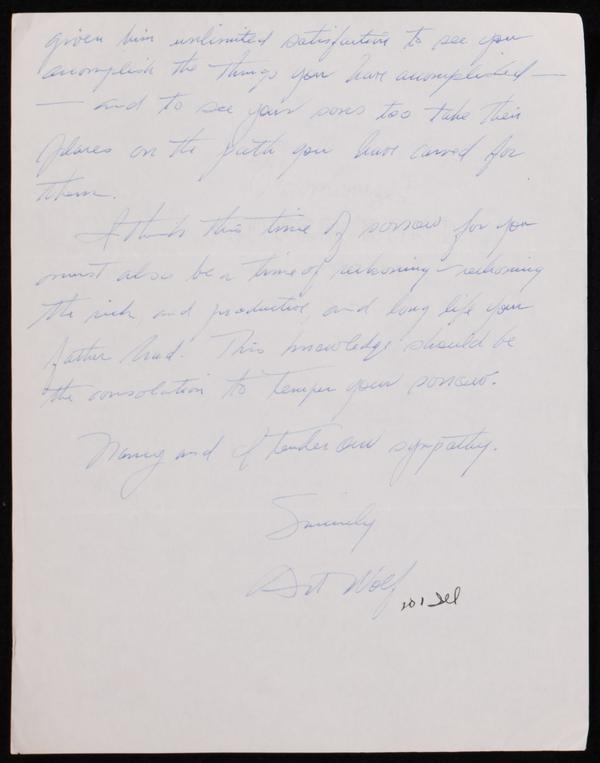 given him unlimited satisfaction to see you
accomplish the things you have accomplished —
— and to see your sons too take their
places on the path you have carved for
them.
I think this time of sorrow for you
must also be a time of reckoning – reckoning
the rich and productive, and long life your
father had. This knowledge should be
the consolation to temper your sorrow.
Nancy and I tender our sympathy.
Sincerely
Art Wolf